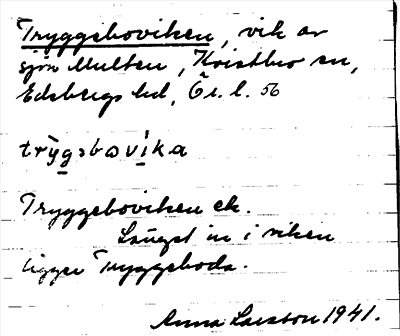 Tryggeboviken, vik av
sjön Multen, Kvistbro sn,
Edsbergs hd, Ör. l. 56
trygəbovika
Tryggeboviken ek.
Längst in i viken
ligger Tryggeboda.
Anna Larsson 1941.